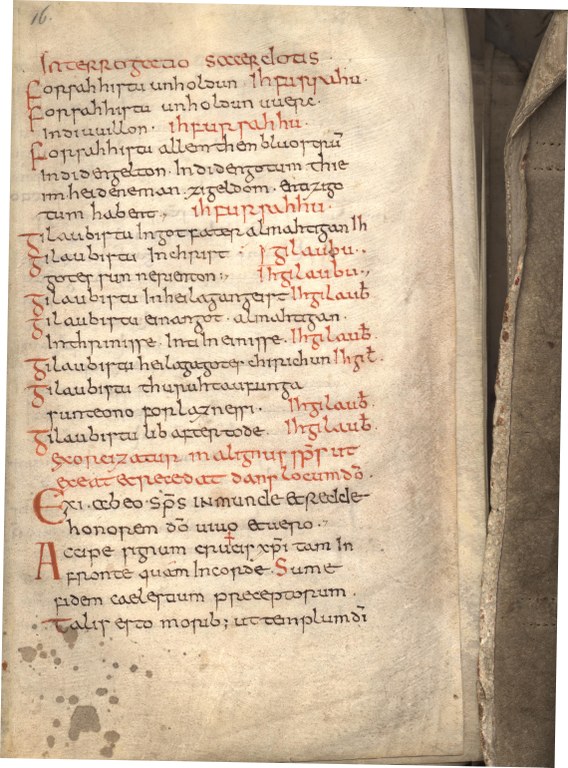 16.
Interrogatio sacerdotis.
Forsahhistu unholdun Ih fursahu.
Forsahhistu unholdun uuerc
indiuuillon. ihfursahhu.
Forsahhistu allem them bluostrū
indidengelton. Indidengotum thie
im heidene man. zigeldom. entizigo
tum habent,, ihfursahhu.
Gilaubistu Ingot fater almahtigan Ih
Gilaubistu In christ Ihgilaubu..
gotes sun nerienton:, Ihgilaubu.,
Gilaubistu In heilagan geist. Ihgilaub̄
Gilaubistu einan got. almahtigan.
Inthrinisse. Inti In einisse. Ihgilaub̄.
Gilaubistu heilaga gotes chirichun Ihgil̄.
Gilaubistu thuruh taufunga
sunteono forlaznessi. Ihgilaub̄.
Gilaubistu lib after tode. Ihgilaub̄.
exorcizatur malignus sp̄s ut
exeat et recedat dans locum dō.
Exi ab eo sp̄s inmunde et redde
honorem dō vivo et uero.
Accipe signum crucis xp̄i tam In
fronte quam Incorde. Sume
fidem caelestium preceptorum.
Talis esto morib; ut templum dī